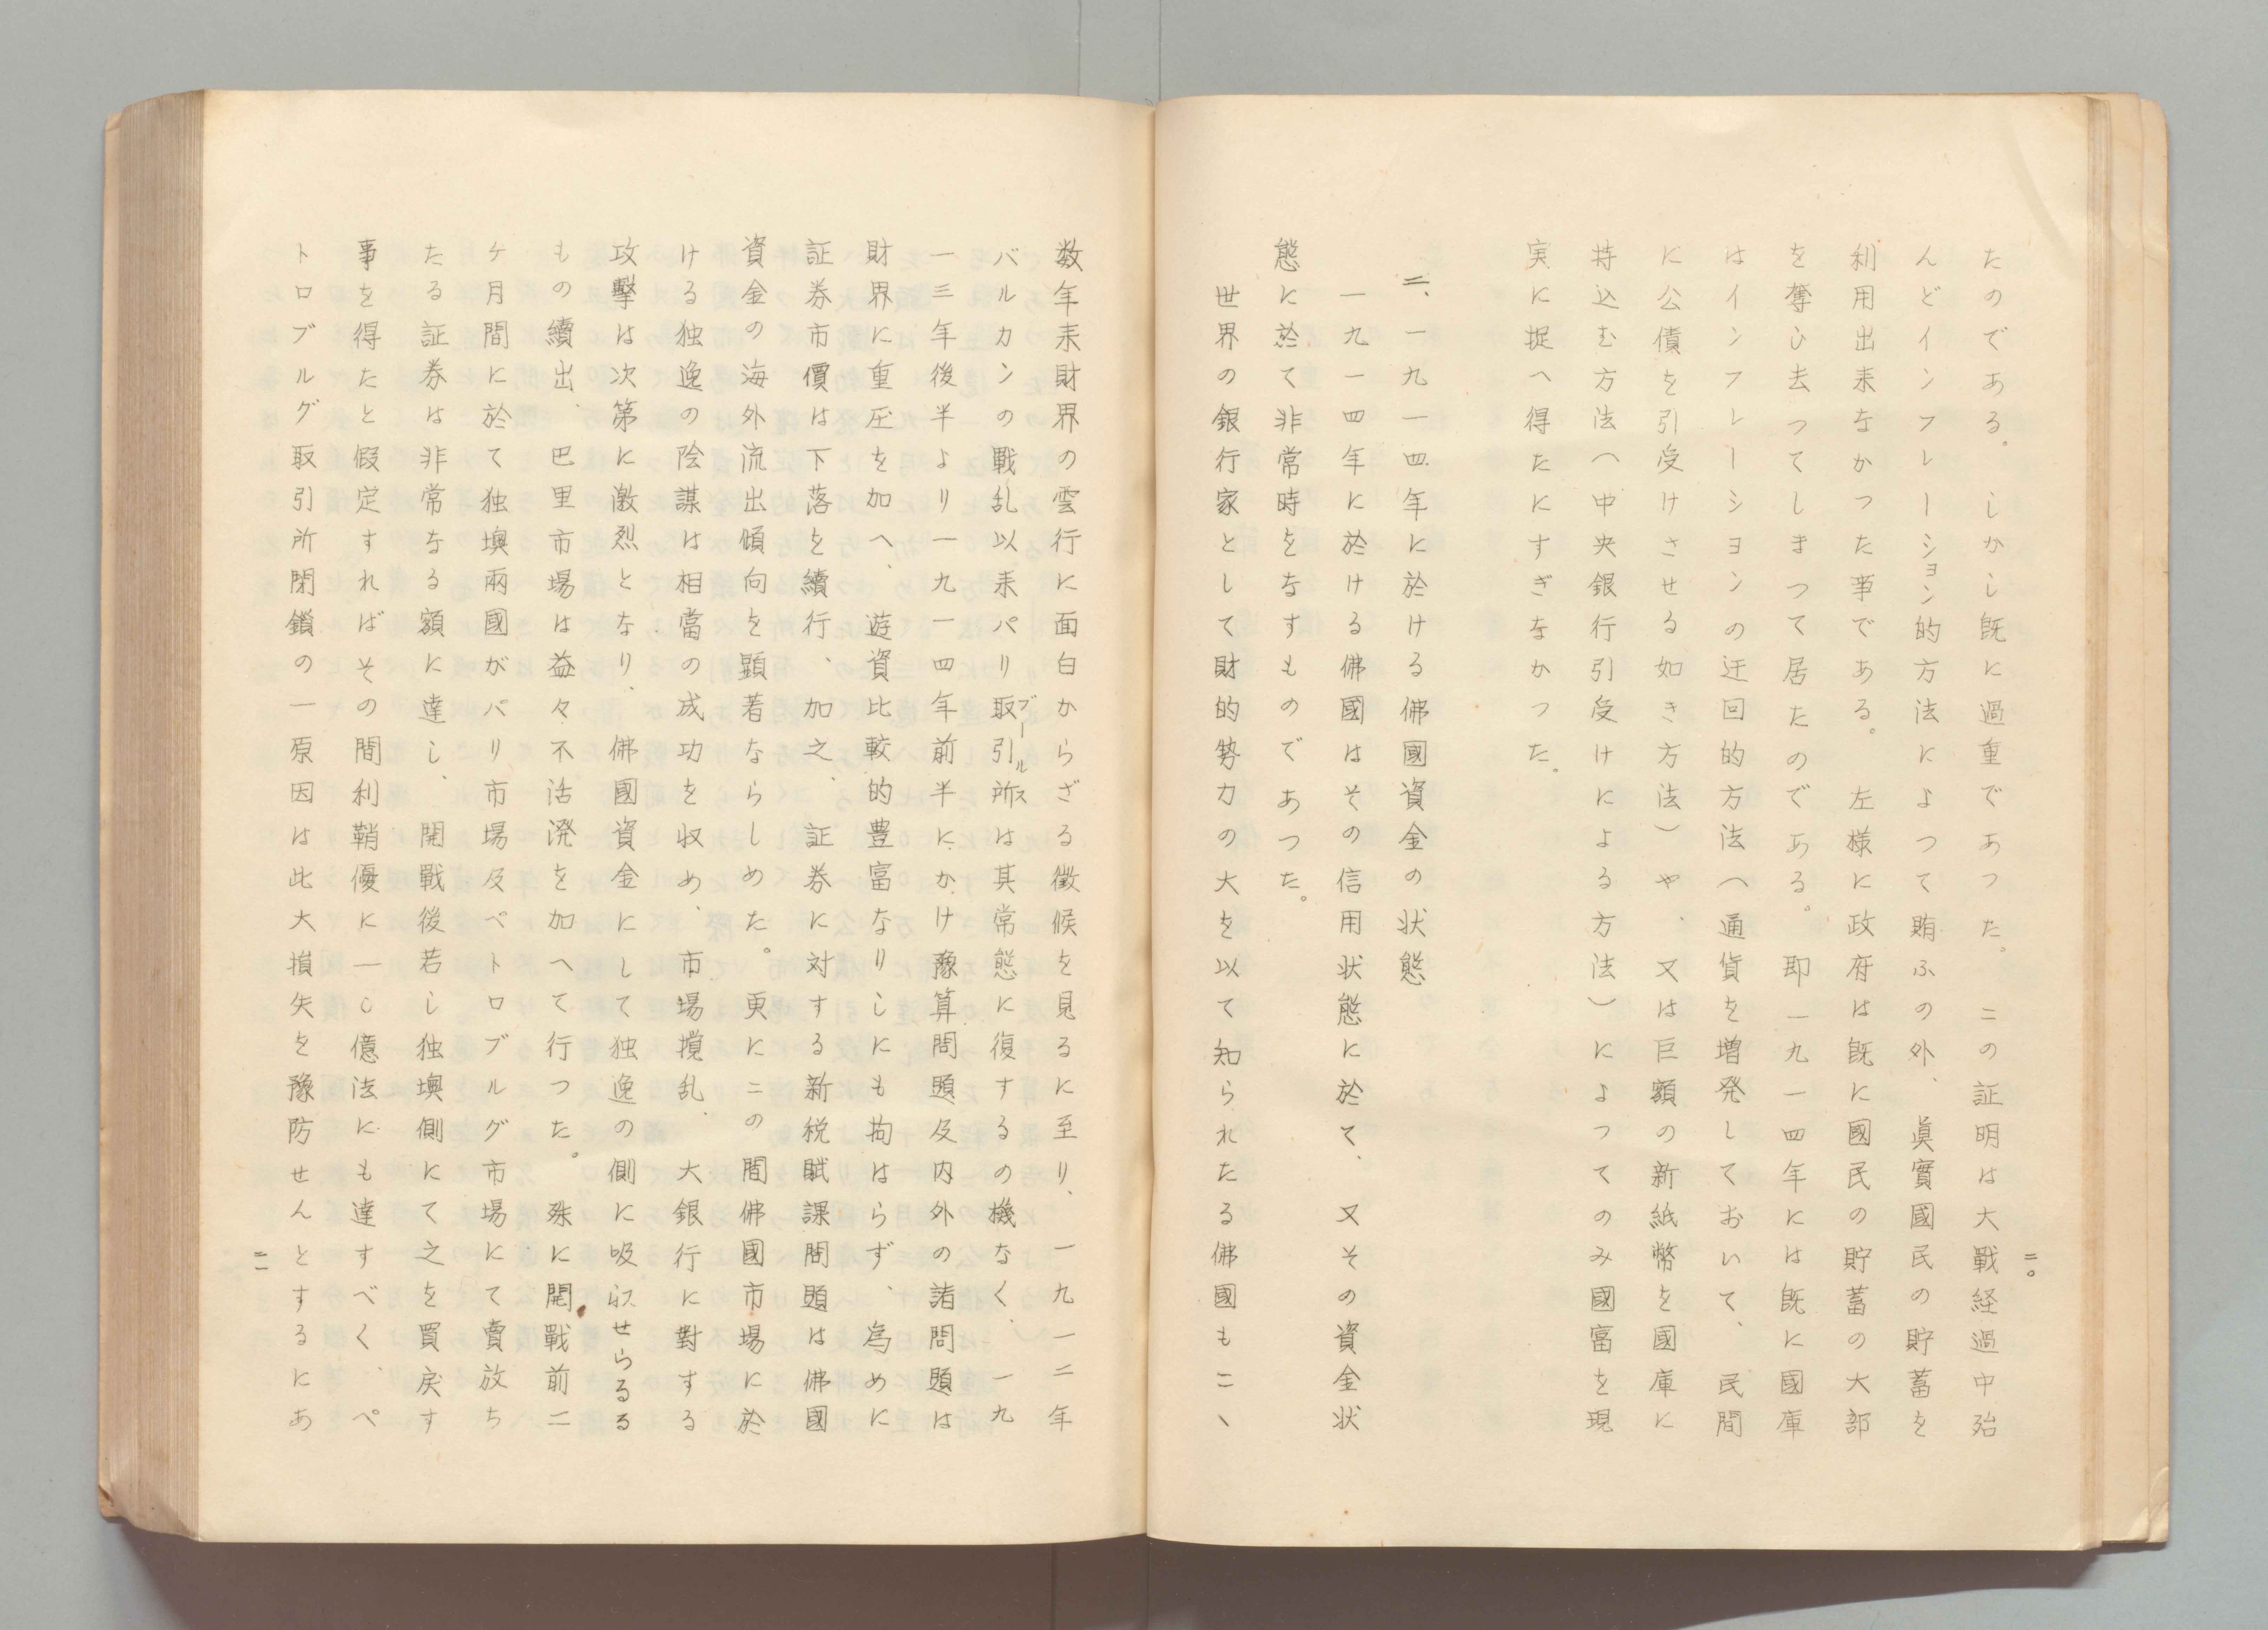 二〇
たのである。しかし既に過重であつた。この証明は大戰経過中殆
んどインフレーション的方法によつて賄ふの外、眞實國民の貯蓄を
利用出来なかつた事である。左様に政府は既に國民の貯蓄の大部
を奪ひ去つてしまつて居たのである。卽一九一四年には既に國庫
はインフレーションの迂回的方法へ通貨を増発しておいて、民間
に公債を引受けさせる如き方法）や、又は巨額の新紙幣を國庫に
持込む方法（中央銀行引受けによる方法）によつてのみ國富を現
実に捉へ得たにすぎなかつた。
二、一九一四年に於ける佛國資金の状態
一九一四年に於ける佛國はその信用状態に於て、又その資金状
態に於て非常時をなすものであつた。
世界の銀行家として財的勢力の大を以て知られたる佛國もこゝ
数年来財界の雲行に面白からざる徴候を見るに至り、一九一二年
バルカンの戰乱以来パリ取引所ブールスは其常態に復するの機なく、一九
一三年後半より一九一四年前半にかけ豫算問題及内外の諸問題は
財界に重圧を加へ、遊資比較的豊富なりしにも拘はらず、為めに
証券市價は下落を續行、加之、証券に対する新税賦課問題は佛國
資金の海外流出傾向を顕著ならしめた。更にこの間佛國市場に於
ける独逸の陰謀は相當の成功を収め、市場撹乱、大銀行に對する
攻擊は次第に激烈となり、佛國資金にして独逸の側に吸収せらるる
もの續出、巴里市場は益々不活溌を加へて行つた。殊に開戰前二
ケ月間に於て独墺兩國がパリ市場及ペトロブルグ市場にて賣放ち
たる証券は非常なる額に達し、開戰後若し独墺側にて之を買戻す
事を得たと假定すればその間利鞘優に一〇億法にも達すべく、ペ
トロブルグ取引所閉鎖の一原因は此大損失を豫防せんとするにあ
二一